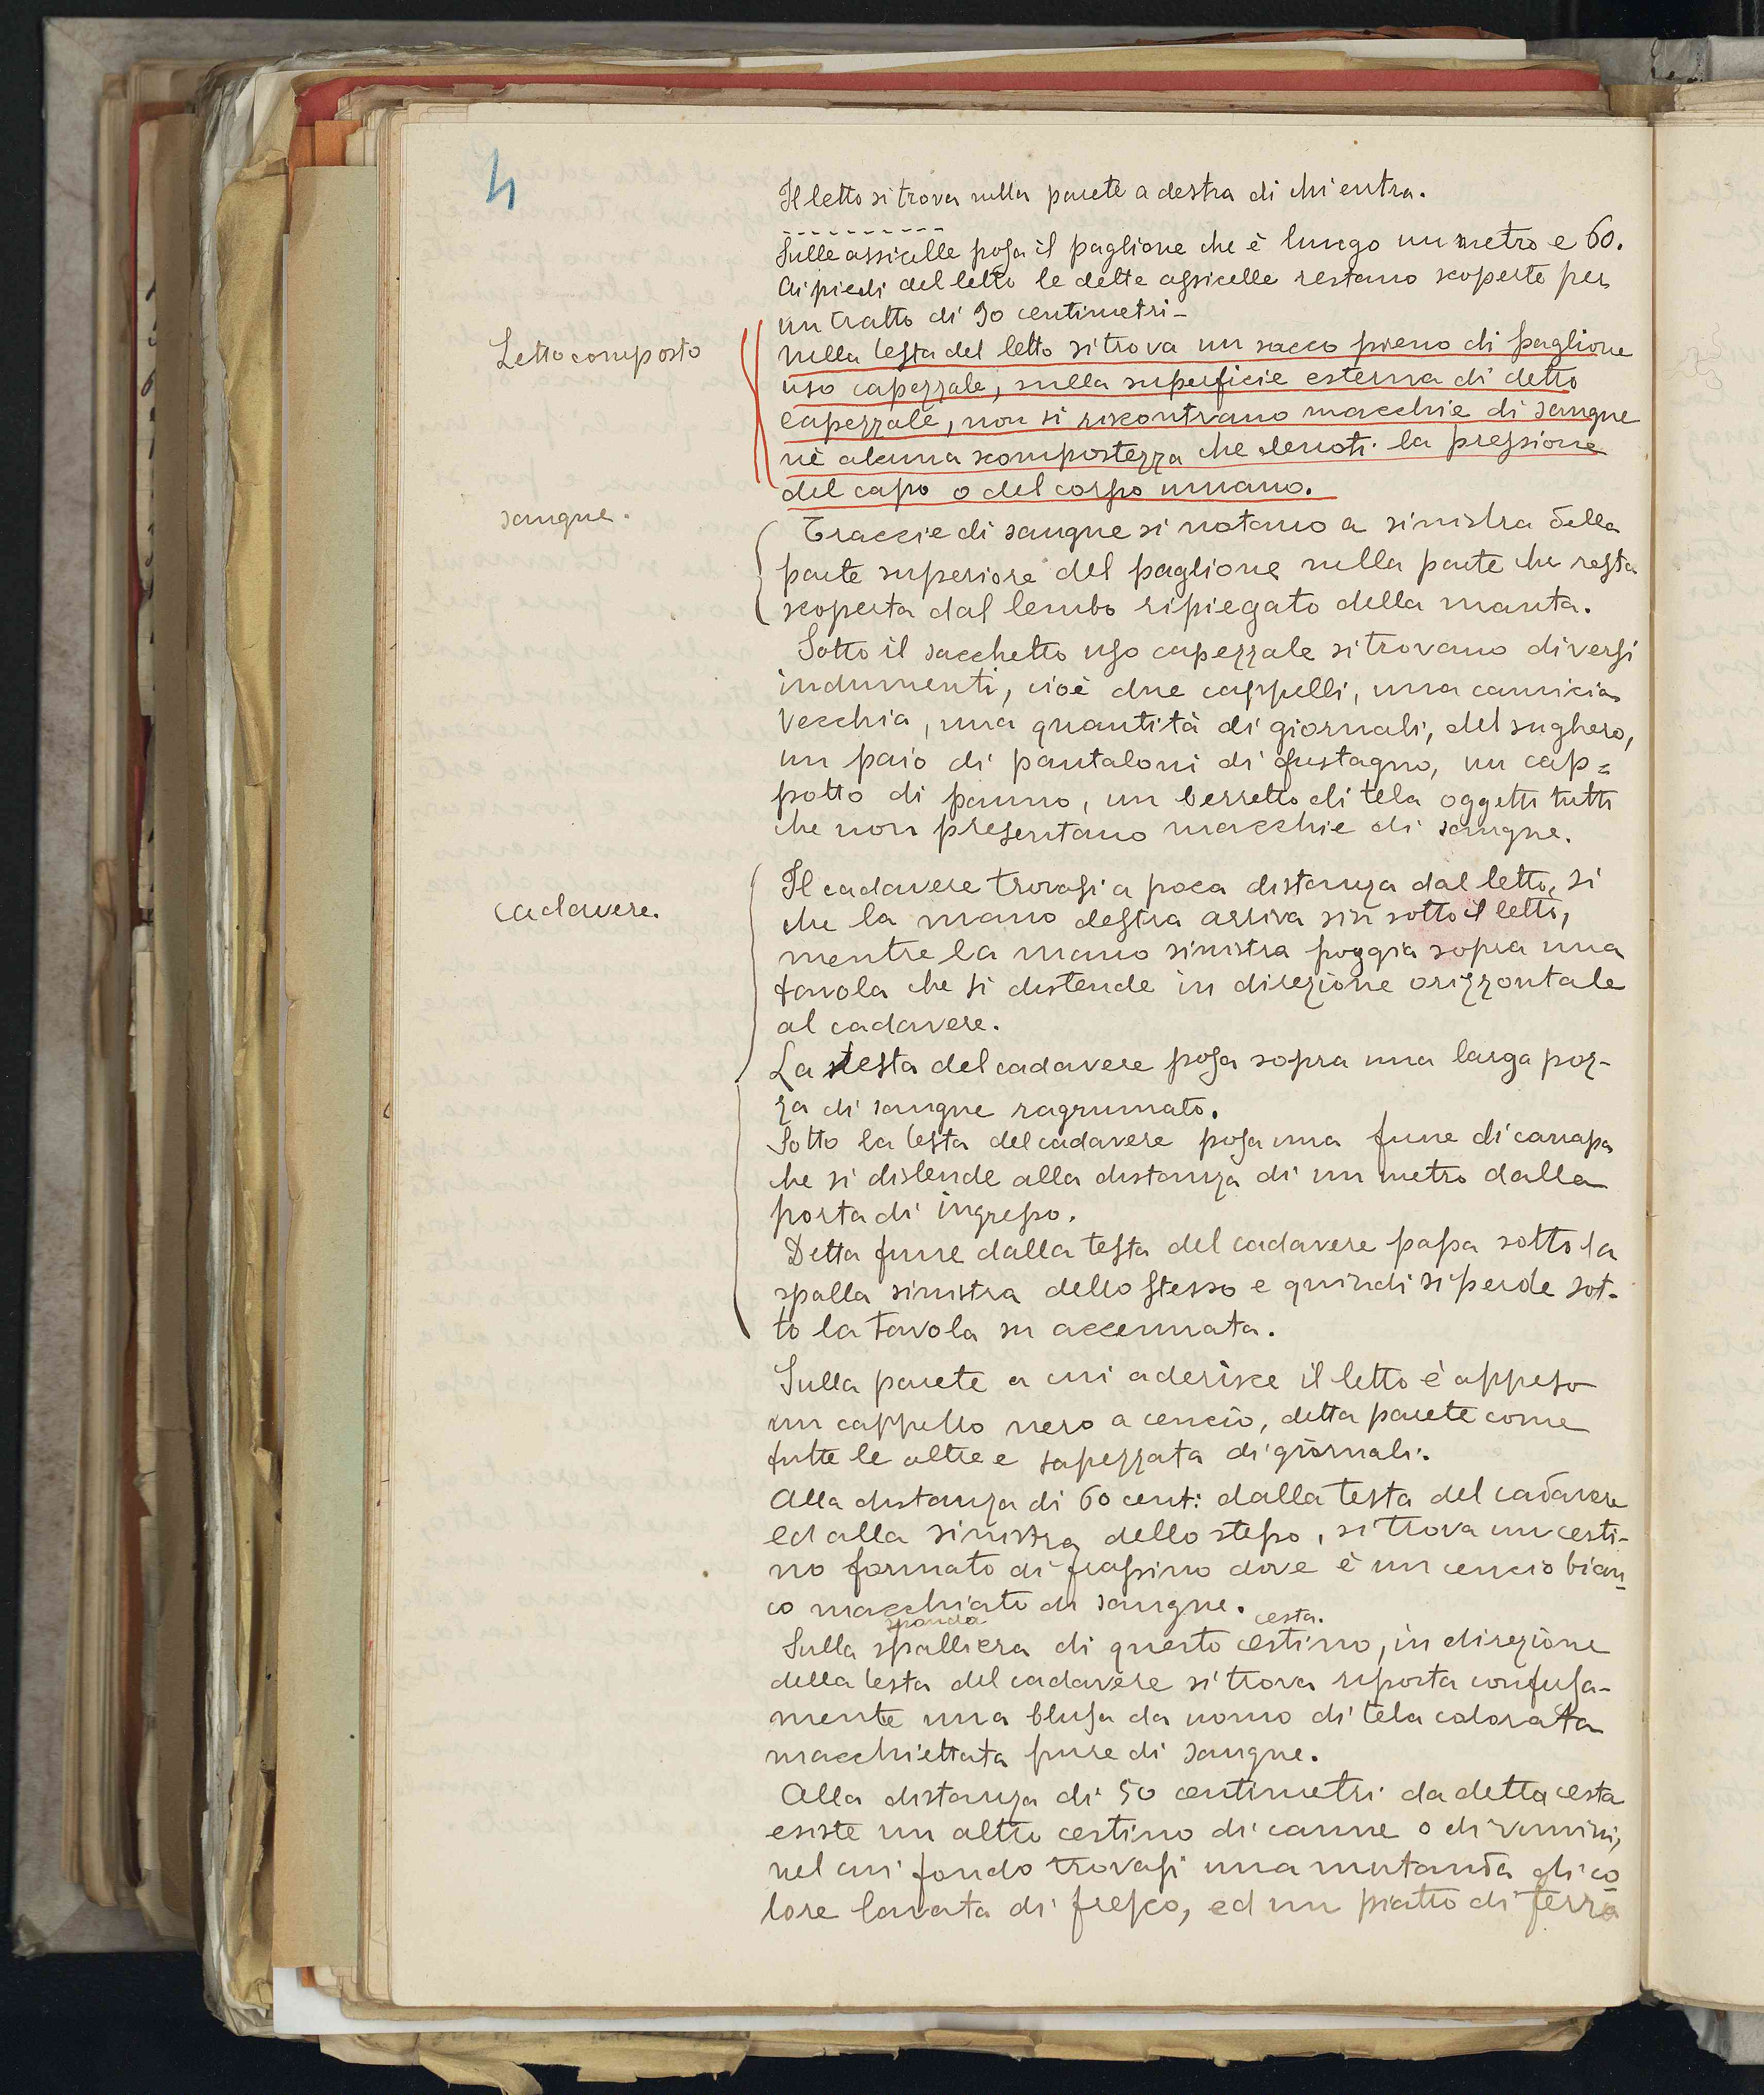 4
Il letto si trova nella parete a destra di chi entra.
- - - - - - - - - -
Sulle assicelle posa il paglione che è lungo un metro e 60.
Ai piedi del letto le dette assicelle restano scoperte per
un tratto di 90 centimetri -
Letto composto
nella testa del letto si trova un sacco pieno di paglione
uso capezzale, sulla superficie esterna di detto
capezzale, non si riscontrano macchie di sangue
nè alcuna scompostezza che denoti la pressione
del capo o del corpo umano.
sangue.
Traccie di sangue si notano a sinistra della
parte superiore del paglione nella parte che resta
scoperta dal lembo ripiegato della manta.
Sotto il sacchetto uso capezzale si trovano diversi
indumenti, cioè due cappelli, una camicia
vecchia, una quantità di giornali, del sughero,
un paio di pantaloni di fustagno, un cap=
potto di panno, un berretto di tela oggetti tutti
che non presentano macchie di sangue.
cadavere.
Il cadavere trovasi a poca distanza dal letto, si
che la mano destra arriva sin sotto il letto,
mentre la mano sinistra poggia sopra una
tavola che si distende in direzione orizzontale
al cadavere.
La testa del cadavere posa sopra una larga poz-
za di sangue ragrumato.
Sotto la testa del cadavere posa una fune di canapa
che si distende alla distanza di un metro dalla
porta di ingresso.
Detta fune dalla testa del cadavere passa sotto la
spalla sinistra dello stesso e quindi si perde sot-
to la tavola su accennata.
Sulla parete a cui aderisce il letto è appeso
un cappello nero a cencio, detta parete come
tutte le altre e tapezzata di giornali.
Alla distanza di 60 cent: dalla testa del cadavere
ed alla sinistra dello stesso, si trova un cesti-
no formato di frassino dove è un cencio bian-
co macchiato di sangue.
sponda cesta.
Sulla spalliera di questo cestino, in direzione
della testa del cadavere si trova riposta confusa-
mente una blusa da uomo di tela colorata
macchiettata pure di sangue.
Alla distanza di 50 centimetri da detta cesta
esiste un altro cestino di canne o di vimini,
nel cui fondo trovasi una mutanda di co
lore lavata di fresco, ed un piatto di terra